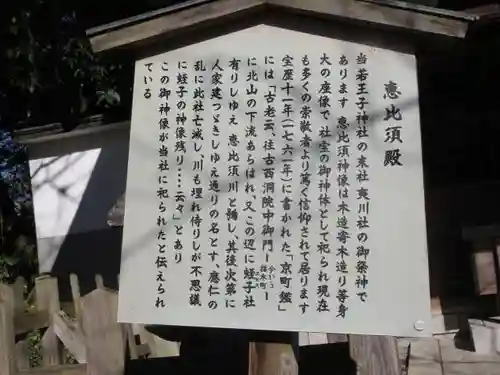 恵比須殿
当若王子神社の末社 夷川社の御祭神で
あります 恵比須神像は木造寄木造り等身
大の座像で 社宝の御神体として祀られ現在
も多くの崇敬者より篤く信仰されて居ります
宝歴十一年(一七六一年)に書かれた「京町鑑」
には「古老云、往古西洞院中御門
に北山の下流あらはれ 又この辺に蛭子社
有りしゆえ 恵比須川と号し、其後次第に
人家建つゞきしゆえ通りの名とす、応仁の
乱に此社亡滅し川も埋れ侍りしが不思議
に蛭子の神像残り‥‥云々」とあり
この御神像が当社に祀られたと伝えられ
ている